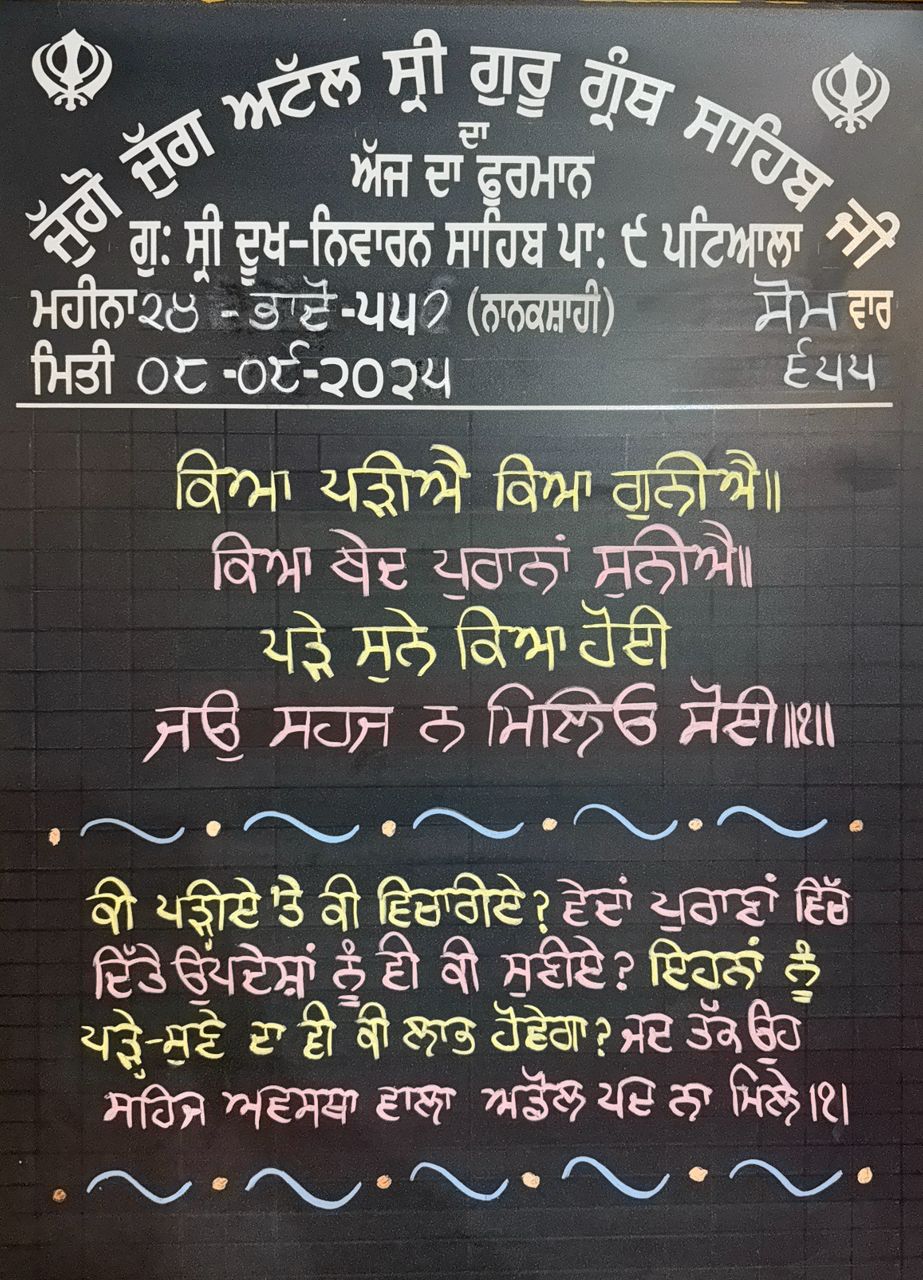 ਜੁੱਗੋ ਜੁੱਗ ਅਟੱਲ ਸ੍ਰੀ ਗੁਰੂ ਗ੍ਰੰਥ ਸਾਹਿਬ ਜੀ
ਦਾ
ਅੱਜ ਦਾ ਫੂਰਮਾਨ
ਗੁ: ਸ੍ਰੀ ਦੂਖ-ਨਿਵਾਰਨ ਸਾਹਿਬ ਪਾ: ੯ ਪਟਿਆਲਾ
ਮਹੀਨਾ ੨੪ - ਭਾਦੋਂ - (ਨਾਨਕਸ਼ਾਹੀ) ਸੋਮ ਵਾਰ
ਮਿਤੀ ੦੮ -੦੯-੨੦੨੫ ੬੫੫
ਕਿਆ ਪੜੀਐ ਕਿਆ ਗੁਨੀਐ॥
ਕਿਆ ਬੇਦ ਪੁਰਾਨਾਂ ਸੁਨੀਐ॥
ਪੜੇ ਸੁਨੇ ਕਿਆ ਹੋਈ
ਜਉ ਸਹਜ ਨ ਮਿਲਿਓ ਸੋਈ॥੧॥
ਕੀ ਪੜ੍ਹੀਏ 'ਤੇ ਕੀ ਵਿਚਾਰੀਏ? ਵੇਦਾਂ ਪੁਰਾਣਾਂ ਵਿੱਚ
ਦਿੱਤੇ ਉਪਦੇਸ਼ਾਂ ਨੂੰ ਵੀ ਕੀ ਸੁਣੀਏ? ਇਹਨਾਂ ਨੂੰ
ਪੜ੍ਹੇ-ਸੁਣੇ ਦਾ ਵੀ ਕੀ ਲਾਭ ਹੋਵੇਗਾ? ਜਦ ਤੱਕ ਉਹ
ਸਹਿਜ ਅਵਸਥਾ ਵਾਲਾ ਅਡੋਲ ਪਦ ਨਾ ਮਿਲੇ।੧।